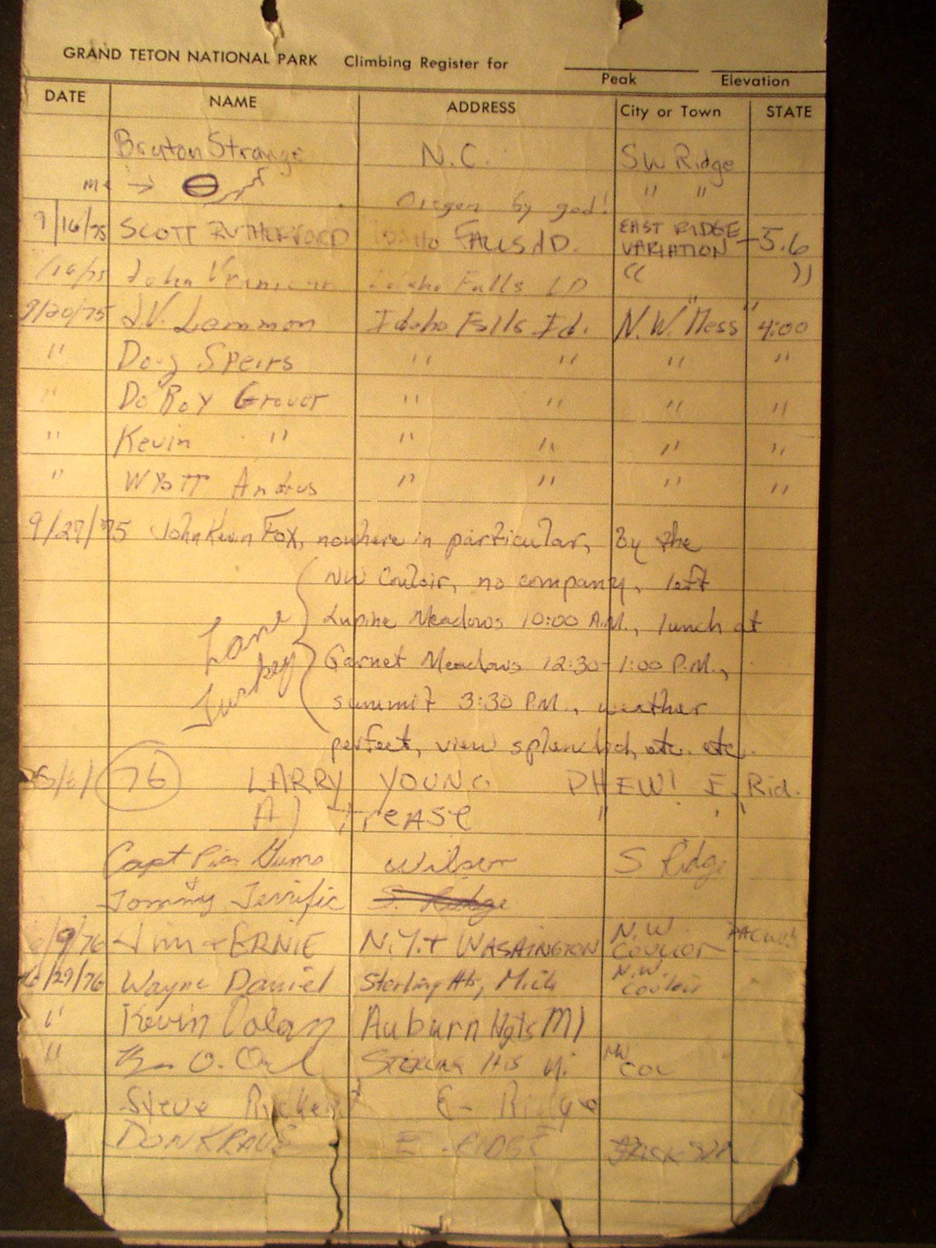 GRAND TETON NATIONAL PARK Climbing Register for
Peak Elevation
DATE NAME ADDRESS City or Town STATE
Bruton Strange N.C. SW Ridge
me → " "
Oregon by god!
9/16/75 SCOTT RUTHERFORD IDAHO FALLS ID. EAST RIDGE VARIATION - 5.6
/16/75 John Idaho Falls ID (( ))
9/20/75 J.V. Lemmon Idaho Falls Id. N.W. "Mess" 4:00
" Doug Speirs " " " "
" DeRoy Grover " " " "
" Kevin " " " " "
" Wyatt Andrus " " " "
9/27/75 John Kevin Fox, nowhere in particular, By the
NW Couloir, no company, left
Lupine Meadows 10:00 A.M., lunch at
Garnet Meadows 12:30-1:00 P.M.,
summit 3:30 P.M., weather
perfect, view splendid, etc. etc.
Lane Turkey
/6/ 76 LARRY YOUNG PHEW! E. Rid.
Al Trease " "
Capt Wilson S Ridge
Tommy Terrific S. Ridge
6/9/76 Jim + ERNIE N.Y. + WASHINGTON N.W. Couloir
6/29/76 Wayne Daniel Sterling Hts, Mich N.W. Couloir
" Kevin Dolan Auburn Hgts MI
" O. Sterling Hts Mi. NW Cou
Steve E- Ridge
DON KRAUS E. RIDGE JACKSON